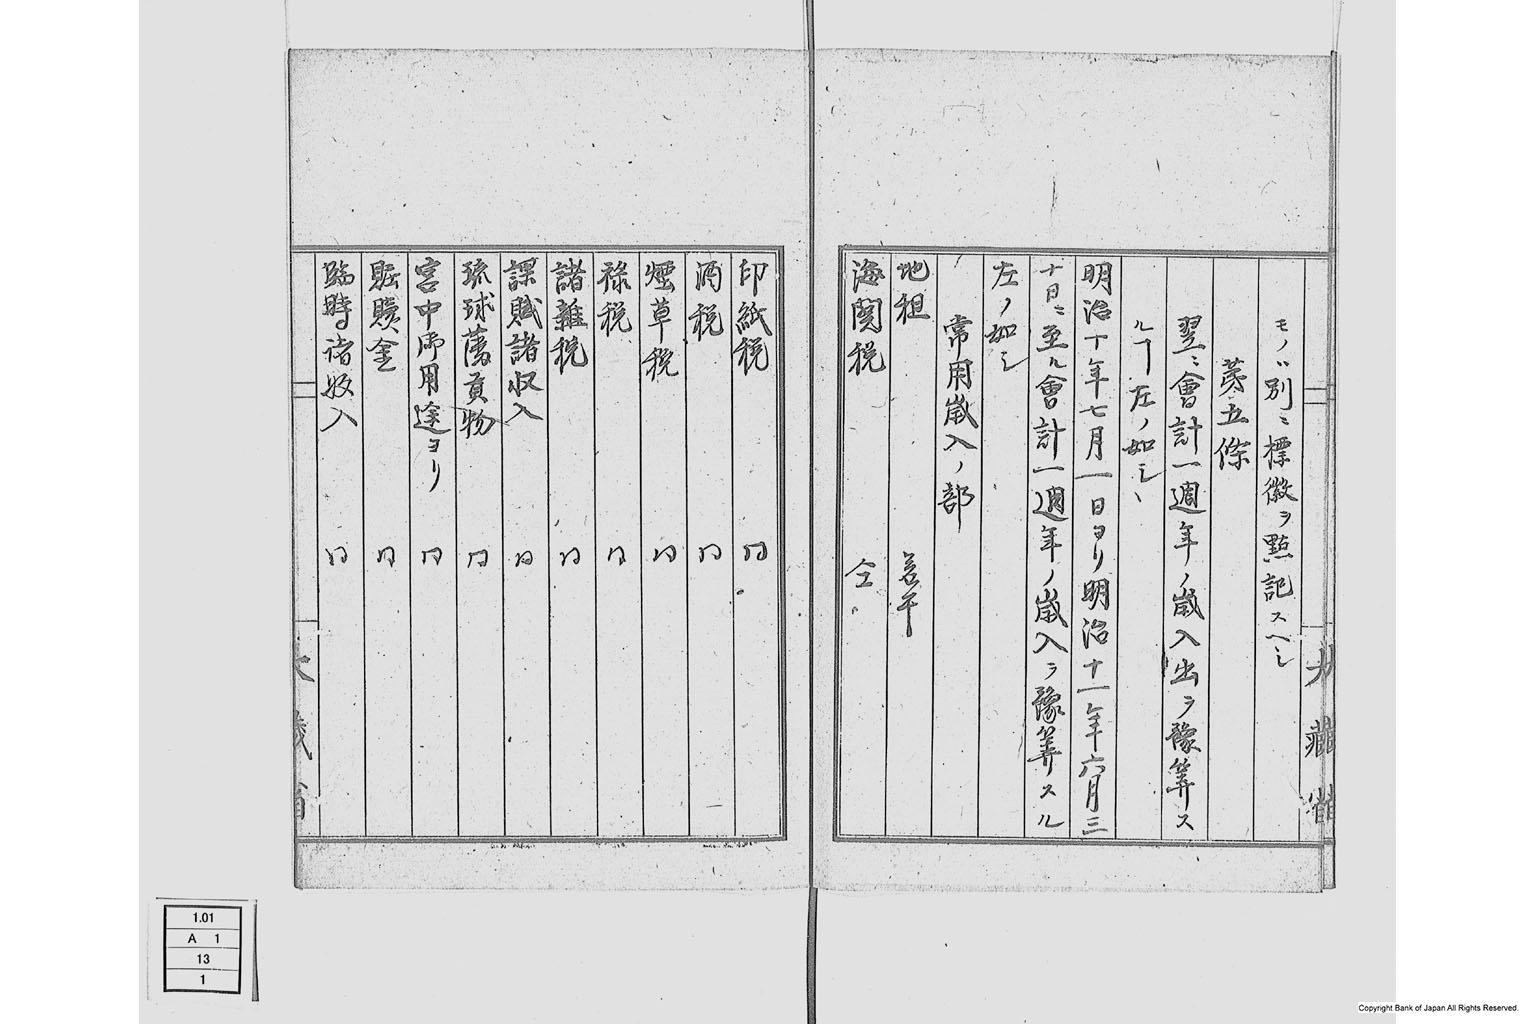 モノハ別ニ標徽ヲ點記スヘシ
第五條
翌ニ會計一週年ノ歳入出ヲ豫筭ス
ルヿ左ノ如シ、
明治十年七月一日ヨリ明治十一年六月三
十日ニ至ル會計一週年ノ歳入ヲ豫筭スル
左ノ如シ
常用歳入ノ部
地租 若干
海関税 仝
大藏省
印紙税 同
酒税 同
煙草税 同
祿税 同
諸雜税 同
課賦諸収入 同
琉球藩貢物 同
宮中御用途ヨリ 同
賍贖金 同
臨時諸収入 同
大藏省
1.01
A 1
13
1
Copyright Bank of Japan All Rights Reserved.